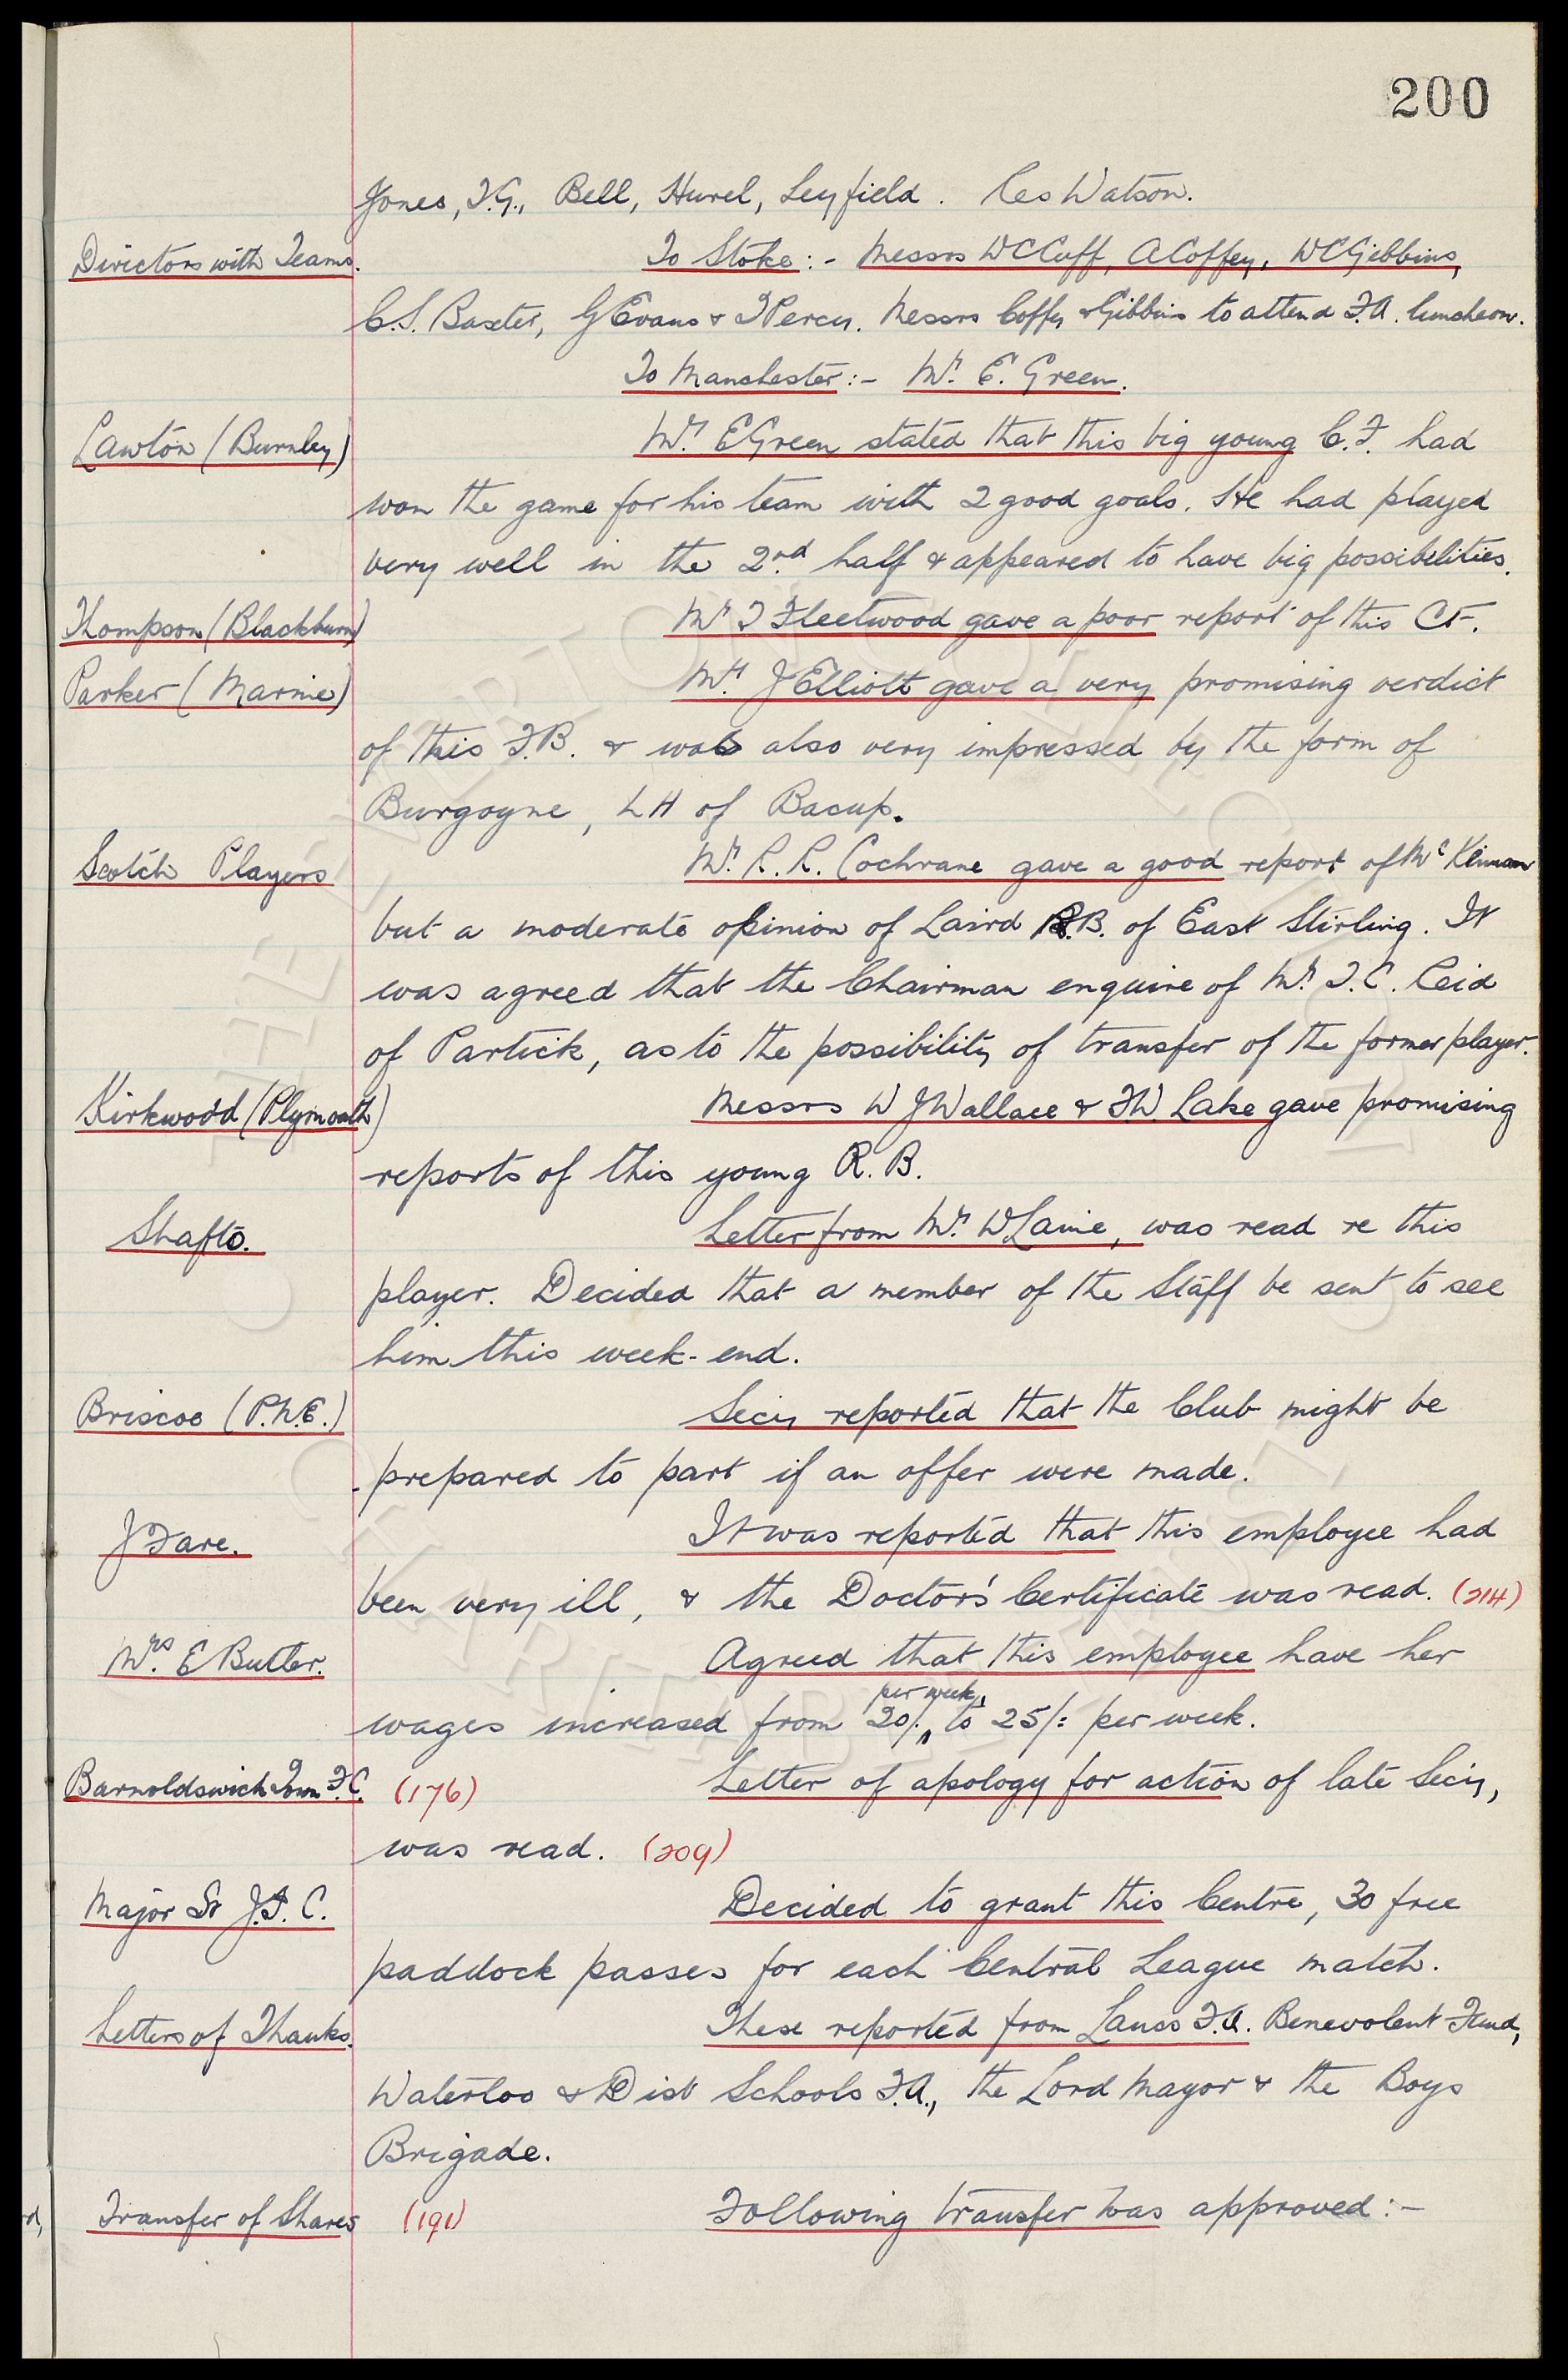 200
Jones, T.G., Bell, Hurel, Leyfield. Res Watson.
Directors with Teams. To Stoke:- Messrs WCCuff, ACoffey, WCGibbins,
C.S. Baxter, GEvans & TPercy. Messrs Coffey & Gibbins to attend F.A. luncheon.
To Manchester:- Mr. E. Green.
Lawton (Burnley) Mr. EGreen stated that this big young C.F. had
won the game for his team with 2 good goals. He had played
very well in the 2nd half & appeared to have big possibilities.
Thompson (Blackburn) Mr T Fleetwood gave a poor report of this CF.
Parker (Marine) Mr. JElliott gave a very promising verdict
of this F.B. & was also very impressed by the form of
Burgoyne, LH of Bacup.
Scotch Players Mr. R.R. Cochrane gave a good report of
but a moderate opinion of Laird B. of East Stirling. It
was agreed that the Chairman enquire of Mr. T.C. Reid
of Partick, as to the possibility of transfer of the former player.
Kirkwood (Plymouth) Messrs W JWallace & F.W. Lake gave promising
reports of this young R.B.
Shafto. Letter from Mr. W was read re this
player. Decided that a member of the Staff be sent to see
him this week-end.
Briscoe (P.N.E.) Secy reported that the Club might be
prepared to part if an offer were made.
J Fare. It was reported that this employee had
been very ill, & the Doctor's Certificate was read. (214)
Mrs. E Butler. Agreed that this employee have her
per week
wages increased from 20/. to 25/: per week.
Barnoldswich Town F.C. (176) Letter of apology for action of late Secy,
was read. (209)
Major St J.I.C. Decided to grant this Centre, 30 free
paddock passes for each Central League match.
Letters of Thanks. These reported from Lancs F.A. Benevolent Fund,
Waterloo & Dist Schools F.A., the Lord Mayor & the Boys
Brigade.
Transfer of Shares (191) Following transfer was approved:-